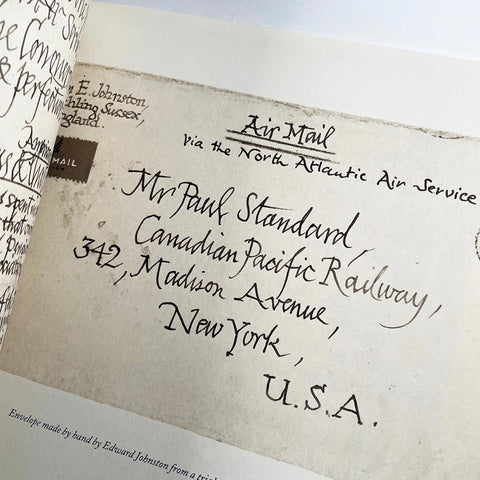 e Conquer
& perfect
E. Johnston,
hling Sussex,
ngland.
MAIL
Air Mail
Via the North Atlantic Air Service
Mr Paul Standard,
Canadian Pacific Railway,
342, Madison Avenue,
New York,
U.S.A.
spent
that
Envelope made by hand by Edward Johnston from a trial